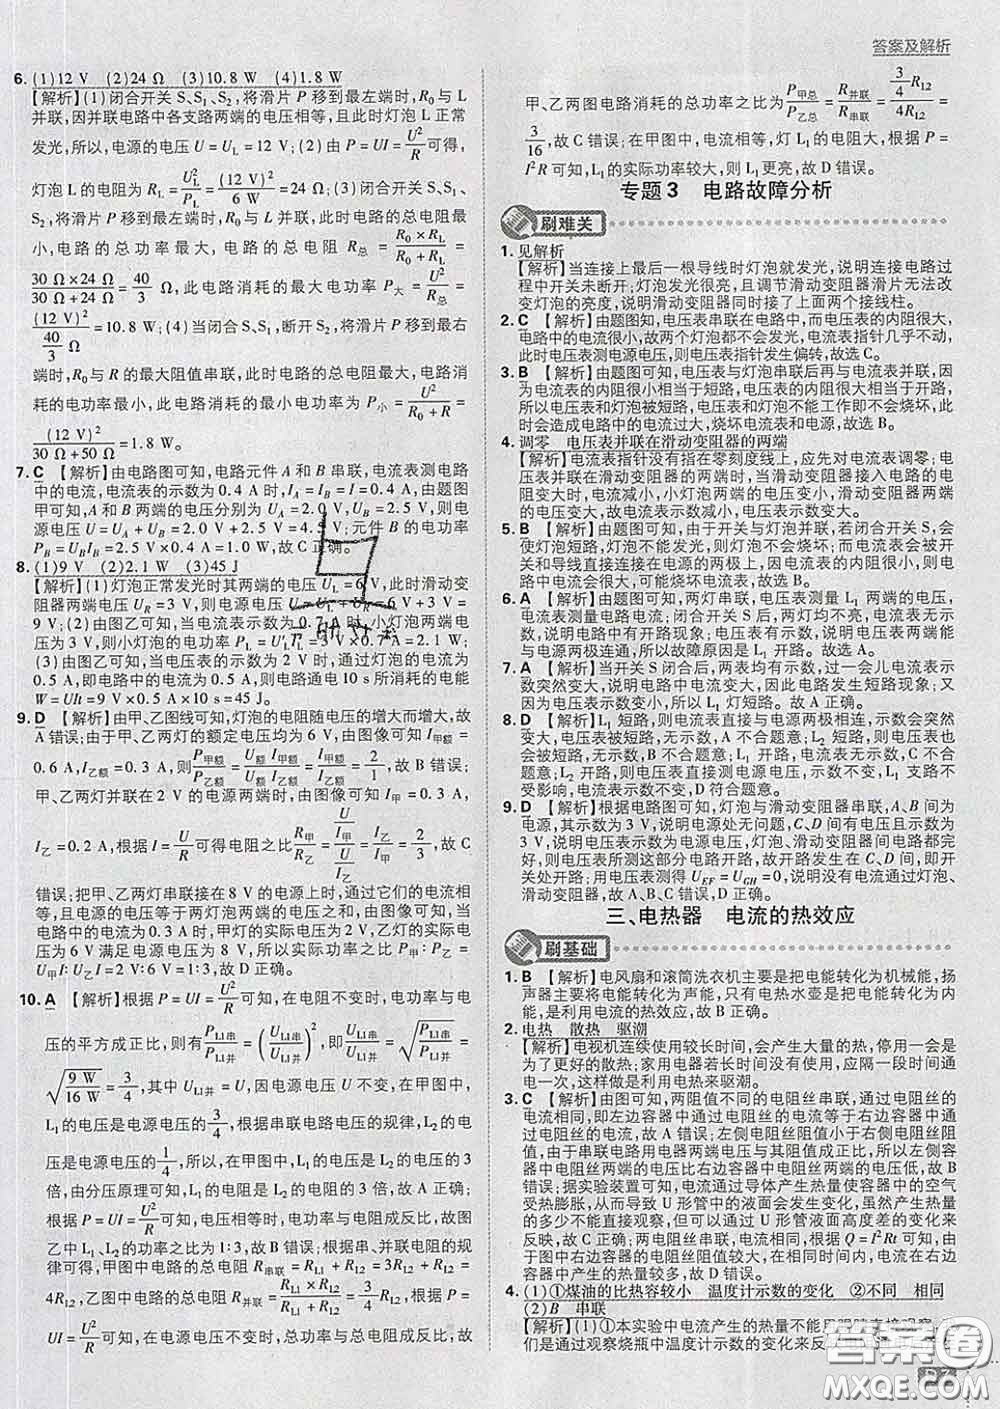 答案及解析
6. (1)12 V (2)24 Ω (3)10.8 W (4)1.8 W
【解析】(1)闭合开关 S、S₁、S₂,将滑片 P 移到最左端时,R₀与 L
并联,因并联电路中各支路两端的电压相等,且此时灯泡 L 正常
发光,所以,电源的电压 U = U_L = 12 V;(2)由 P = UI = U²/R 可得,
灯泡 L 的电阻为 R_L = U_L²/P_L = (12 V)²/6 W = 24 Ω;(3)闭合开关 S、S₁、
S₂,将滑片 P 移到最左端时,R₀与 L 并联,电路的总电阻最
小,电路的总功率最大,电路的总电阻 R总 = (R₀ × R_L)/(R₀ + R_L) =
(30 Ω × 24 Ω)/(30 Ω + 24 Ω) = 40/3 Ω,此电路消耗的最大电功率 P大 = U²/R总 =
(12 V)²/(40/3 Ω) = 10.8 W;(4)当闭合 S、S₁,断开 S₂,将滑片 P 移到最右
端时,R₀与 R 的最大阻值串联,此时电路的总电阻最大,电路消
耗的电功率最小,此电路消耗的最小电功率为 P小 = U²/(R₀ + R) =
(12 V)²/(30 Ω + 50 Ω) = 1.8 W。
7. C 【解析】由电路图可知,电路元件 A 和 B 串联,电流表测电路
中的电流,电流表的示数为 0.4 A 时,I_A = I_B = I = 0.4 A,由题图
甲可知,A 和 B 两端的电压分别为 U_A = 2.0 V、U_B = 2.5 V,则电
源电压 U = U_A + U_B = 2.0 V + 2.5 V = 4.5 V;元件 B 的电功率
P_B = U_B I_B = 2.5 V × 0.4 A = 1.0 W,故 C 正确。
8. (1)9 V (2)2.1 W (3)45 J
【解析】(1)灯泡正常发光时其两端的电压 U_L = 6 V,此时滑动变
阻器两端电压 U_R = 3 V,则电源电压 U = U_L + U_R = 6 V + 3 V =
9 V;(2)由图甲可知,当电流表示数为 0.7 A 时,小灯泡两端电
压为 3 V,则小灯泡的电功率 P_L = U'_L I'_L = 3 V × 0.7 A = 2.1 W;
(3)由图乙可知,当电压表的示数为 2 V 时,通过灯泡的电流为
0.5 A,即电路中的电流为 0.5 A,电路通电 10 s 所消耗的电能
W = UIt = 9 V × 0.5 A × 10 s = 45 J。
9. D 【解析】由甲、乙图线可知,灯泡的电阻随电压的增大而增大,故
A 错误;由于甲、乙两灯的额定电压均为 6 V,由图像可知 I甲额 =
0.6 A,I乙额 = 0.3 A,则 P甲额/P乙额 = I甲额/I乙额 = 2/1,故 B 错误;
甲、乙两灯并联在 2 V 的电源两端时,由图像可知 I甲 = 0.3 A,
I乙 = 0.2 A,根据 I = U/R 可得 R甲/R乙 = (U/I甲)/(U/I乙) = I乙/I甲 = 2/3,故 C
错误;把甲、乙两灯串联在 8 V 的电源上时,通过它们的电流相
等,且电源的电压等于两灯泡两端的电压之和,由图像可知,当
电路中的电流为 0.3 A 时,甲灯的实际电压为 2 V,乙灯的实际
电压为 6 V 满足电源电压为 8 V,所以实际功率之比 P甲:P乙 =
U甲I:U乙I = U甲:U乙 = 2 V:6 V = 1:3,故 D 正确。
10. A 【解析】根据 P = UI = U²/R 可知,在电阻不变时,电功率与电
压的平方成正比,则有 P_L1串/P_L1并 = (U_L1串/U_L1并)²,即 U_L1串/U_L1并 = √(P_L1串/P_L1并) =
√(9 W/16 W) = 3/4,其中 U_L1并 = U,因电源电压 U 不变,在甲图中,
L₁的电压是电源电压的 3/4,根据串联电路电压的规律,L₂的电
压是电源电压的 1/4,所以,在甲图中,L₁的电压是 L₂的电压的 3
倍,由分压原理可知,L₁的电阻是 L₂的电阻的 3 倍,故 A 正确;
根据 P = UI = U²/R 可知,电压相等时,电功率与电阻成反比,故图
乙中 L₁、L₂的功率之比为 1:3,故 B 错误;根据串、并联电阻的规
律可得,甲图中电路的总电阻 R串联 = R_L1 + R_L2 = 3R_L2 + R_L2 =
4R_L2,乙图中电路的总电阻 R并联 = (R_L1 × R_L2)/(R_L1 + R_L2) = 3/4 R_L2,根据 P =
UI = U²/R 可知,在电源电压不变时,总功率与总电阻成反比,故
甲、乙两图电路消耗的总功率之比为 P甲总/P乙总 = R并联/R串联 = (3/4 R_L2)/(4R_L2) =
3/16,故 C 错误;在甲图中,电流相等,灯 L₁的电阻大,根据 P =
I²R 可知,L₁的实际功率较大,则 L₁更亮,故 D 错误。
专题 3 电路故障分析
刷难关
1. 见解析
【解析】当连接上最后一根导线时灯泡就发光,说明连接电路过
程中开关未断开;灯泡发光很亮,且调节滑动变阻器滑片无法改
变灯泡的亮度,说明滑动变阻器同时接了上面两个接线柱。
2. C 【解析】由题图知,电压表串联在电路中,而电压表的内阻很大,
电路中的电流很小,故两个灯都不会发光,电流表指针几乎不动,
此时电压表测电源电压,则电压表指针发生偏转,故选 C。
3. B 【解析】由题图可知,电压表与灯泡串联后再与电流表并联,因
电流表的内阻很小相当于短路,电压表的内阻很大相当于开路,
所以电压表和灯泡被短路,电压表和灯泡不能工作即不会烧坏,此
时电流会从电流表流过,由于电流过大,会烧坏电流表和电源,故选 B。
4. 调零 电压表并联在滑动变阻器的两端
【解析】电流表指针没有指在零刻度线上,应先对电流表调零;电
压表并联在滑动变阻器的两端时,当滑动变阻器接入电路的电
阻变大时,电流减小,小灯泡两端的电压变小,滑动变阻器两端
的电压变大,故电流表示数减小,电压表示数变大。
5. B 【解析】由题图可知,由于开关与灯泡并联,若闭合开关 S,会
使灯泡短路,灯泡不能发光,则灯泡不会烧坏;而电流表会被开
关和导线直接连接在电源的两极上,因电流表内阻很小,则电
路中电流会很大,可能烧坏电流表和电源,故选 B。
6. A 【解析】由题图可知,两灯串联,电压表测量 L₁ 两端的电压,
电流表测量电路中的电流;闭合开关 S 后,两灯均不亮,电流表
示数为零,说明电路中有开路现象;电压表有示数,说明电压表两端能
与电源两极连通,所以故障原因是 L₁ 开路。故选 A。
7. A 【解析】当开关 S 闭合后,两表均有示数,过一会儿电流表示
数突然变大,说明电路中电流变大,所以发生短路现象;又
因为电压表示数变为零,所以 L₁ 灯短路。故 A 正确。
8. D 【解析】L₁ 短路,则电流表直接与电源两极相连,示数会突然
变大,电压表被短路,无示数,A 不合题意;L₂ 短路,则电压表也
会被短路,无示数,B 不合题意;L₁ 开路,电流表无示数,C 不合
题意;L₂ 开路,则电压表直接测电源电压,示数不变,L₁ 支路不
受影响,电流表示数不变,D 符合题意。
9. D 【解析】根据电路图可知,灯泡与滑动变阻器串联,A、B 间为
电源,其示数为 3 V,说明电源处无问题,C、D 间有电压且示数为
3 V,说明电压表示数为电源电压,灯泡、滑动变阻器间电路都完
好,则电压表所测这部分电路开路,故开路发生在 C、D 间,即开
关处开路;用电压表测得 U_EF = U_GH = 0,说明没有电流通过灯泡、
滑动变阻器,故 A、B、C 错误,D 正确。
三、电热器 电流的热效应
刷基础
1. B 【解析】电风扇和滚筒洗衣机主要是把电能转化为机械能,扬
声器主要将电能转化为声能,只有电热水壶是把电能转化为内
能,是利用电流的热效应,故 B 正确。
2. 电热 散热 驱潮
【解析】电视机连续使用较长时间,会产生大量的热,停用一会是
为了更好的散热;家用电器若长时间没有使用,应隔一段时间通
电一次,这样做是利用电热来驱潮。
3. C 【解析】由图可知,两阻值不同的电阻丝串联,通过电阻丝的
电流相同,即左边容器中通过电阻丝的电流等于右边容器中通
过电阻丝的电流,故 A 错误;左侧电阻丝阻值小于右侧电阻丝阻
值,由于串联电路用电器两端电压与其阻值成正比,所以左边容
器中电阻丝两端的电压比右边容器中电阻丝两端的电压低,故 B
错误;据实验装置可知,电流通过导体产生热量使容器中的空气
受热膨胀,从而导致 U 形管中的液面会发生变化,虽然产生热量
的多少不能直接观察,但可以通过 U 形管液面高度差的变化来
反映,故 C 正确;两电阻丝串联,根据 Q = I²Rt 可知,由
于图中右边容器的电阻丝阻值较大,在相同时间内,电流在右边
容器中产生的热量较多,故 D 错误。
4. (1)①煤油的比热容较小 温度计示数的变化 ②不同 相同
(2)B 串联
【解析】(1)①本实验中电流产生的热量不能用眼睛直接观察,
是通过观察烧瓶中温度计示数的变化来反
答案圈
MXQE.COM